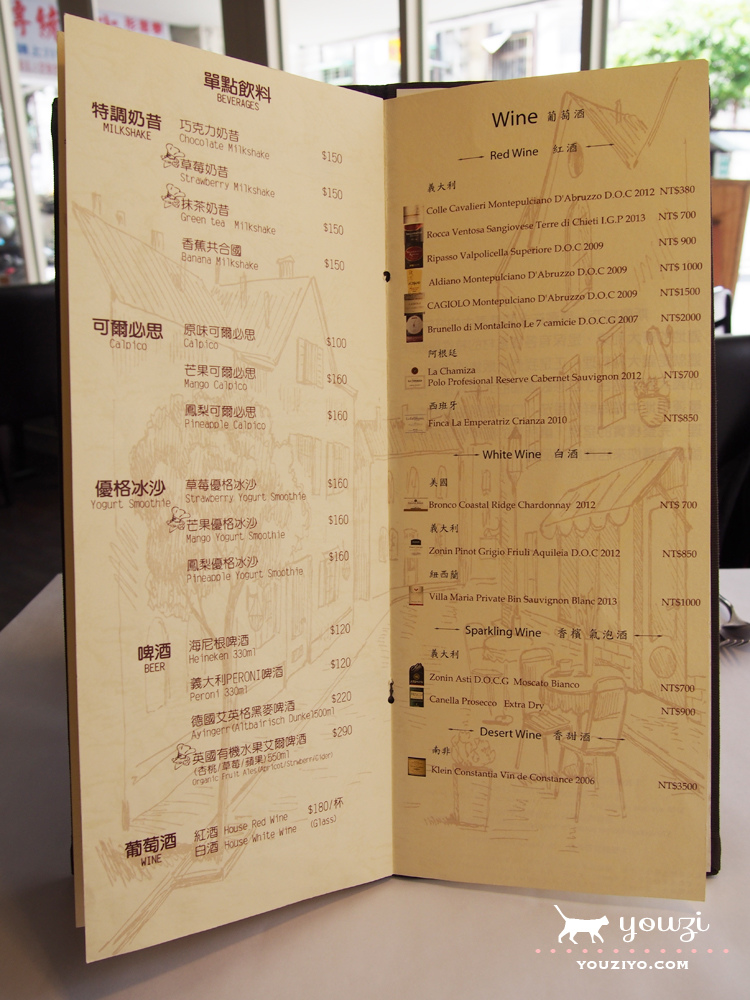 單點飲料
BEVERAGES
特調奶昔
MILKSHAKE
巧克力奶昔
Chocolate Milkshake $150
草莓奶昔
Strawberry Milkshake $150
抹茶奶昔
Green tea Milkshake $150
香蕉共合國
Banana Milkshake $150
可爾必思
Calpico
原味可爾必思 $100
Calpico
芒果可爾必思 $160
Mango Calpico
鳳梨可爾必思 $160
Pineapple Calpico
優格冰沙
Yogurt Smoothie
草莓優格冰沙 $160
Strawberry Yogurt Smoothie
芒果優格冰沙 $160
Mango Yogurt Smoothie
鳳梨優格冰沙 $160
Pineapple Yogurt Smoothie
啤酒
BEER
海尼根啤酒 $120
Heineken 330ml
義大利PERONI啤酒 $120
Peroni 330ml
德國艾英格黑麥啤酒 $220
Ayingerr(Altbairisch Dunkel)500ml
英國有機水果艾爾啤酒 $290
(杏桃/草莓/蘋果)550ml
葡萄酒
WINE
紅酒 House Red Wine $180/杯
白酒 House White Wine (Glass)
Wine 葡萄酒
Red Wine 紅酒
義大利
Colle Cavalieri Montepulciano D'Abruzzo D.O.C 2012 NT$380
Rocca Ventosa Sangiovese Terre di Chieti I.G.P 2013 NT$ 700
Ripasso Valpolicella Superiore D.O.C 2009 NT$ 900
Aldiano Montepulciano D'Abruzzo D.O.C 2009 NT$ 1000
CAGIOLO Montepulciano D'Abruzzo D.O.C 2009 NT$1500
Brunello di Montalcino Le 7 camicie D.O.C.G 2007 NT$2000
阿根廷
La Chamiza
Polo Profesional Reserve Cabernet Sauvignon 2012 NT$700
西班牙
Finca La Emperatriz Crianza 2010 NT$850
White Wine 白酒
美國
Bronco Coastal Ridge Chardonnay 2012 NT$ 700
義大利
Zonin Pinot Grigio Friuli Aquileia D.O.C 2012 NT$850
紐西蘭
Villa Maria Private Bin Sauvignon Blanc 2013 NT$1000
Sparkling Wine 香檳 氣泡酒
義大利
Zonin Asti D.O.C.G Moscato Bianco NT$700
Canella Prosecco Extra Dry NT$900
Desert Wine 香甜酒
南非
Klein Constantia Vin de Constance 2006 NT$3500
youzi
YOUZIYO.COM